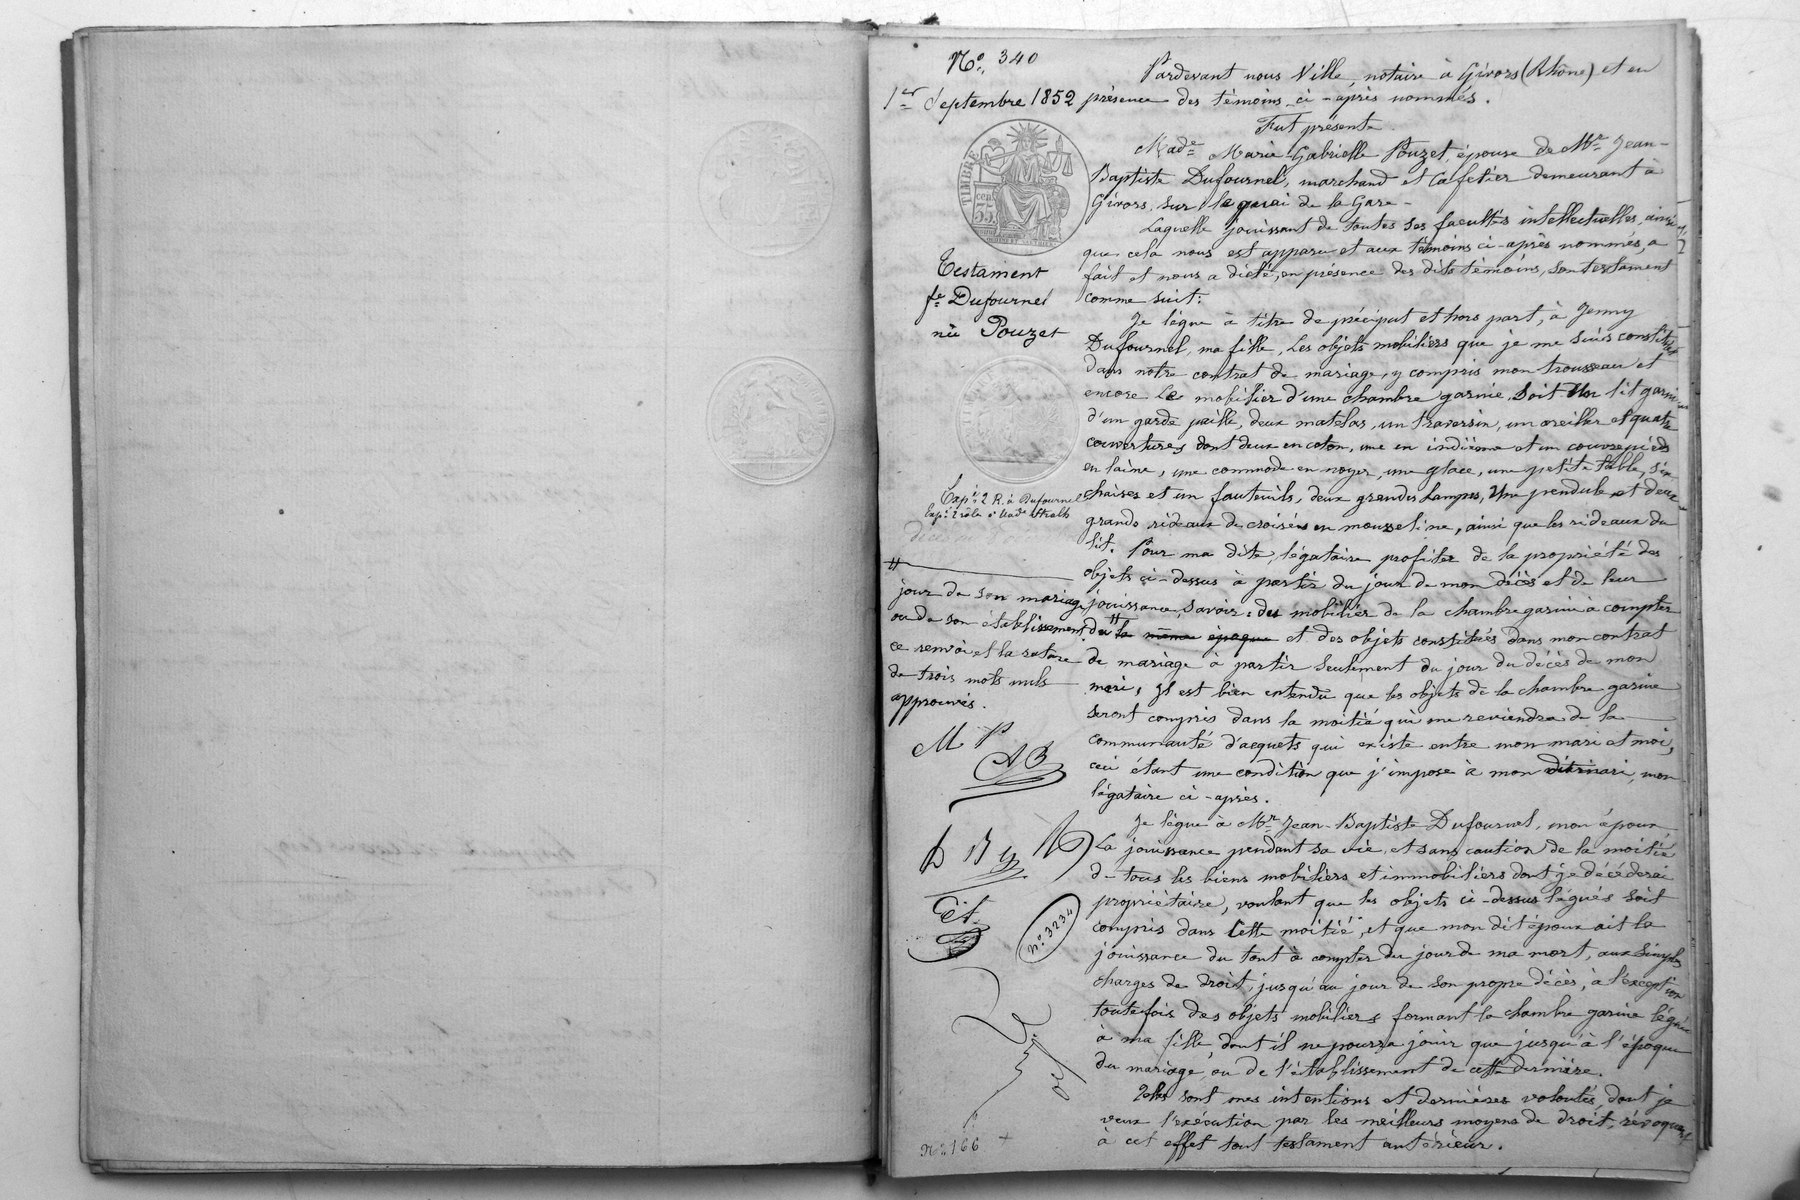 N° 340
1er Septembre 1852
TIMBRE
35
Testament
fe Dufournel
née Pouzet
Expn 2 R. à Dufournel
jour de son mariage
ou de son établissement
ce renvoi et la rature
de trois mots nuls
approuvés.
M P
AB
N° 3234
N° 166
Pardevant nous Ville, notaire à Givors (Rhône) et en
présence des témoins ci-après nommés.
Fut présente
Made Marie Gabrielle Pouzet, épouse de Mr Jean-
Baptiste Dufournel, marchand et Cafetier demeurant à
Givors, sur le quai de la Gare.
Laquelle jouissant de toutes ses facultés intellectuelles, ainsi
que cela nous est apparu et aux témoins ci-après nommés, a
fait et nous a dicté, en présence des dits témoins, son testament
comme suit:
Je lègue à titre de préciput et hors part, à Jenny
Dufournel, ma fille, les objets mobiliers que je me suis constitués
dans notre contrat de mariage, y compris mon trousseau et
encore le mobilier d'une chambre garnie, soit Un lit garni
d'un garde paille, deux matelas, un traversin, un oreiller et quatre
couvertures dont deux en coton, une en indienne et un couvrepieds
en laine, une commode en noyer, une glace, une petite table, six
chaises et un fauteuils, deux grandes lampes, Une pendule et deux
grands rideaux de croisées en mousseline, ainsi que les rideaux du
lit. Pour ma dite légataire profiter de la propriété des
objets ci-dessus à partir du jour de mon décès et de leur
jouissance, savoir: du mobilier de la chambre garnie à compter
du la même époque et des objets constitués dans mon contrat
de mariage à partir seulement du jour du décès de mon
mari, Il est bien entendu que les objets de la chambre garnie
seront compris dans la moitié qui me reviendra de la
communauté d'acquets qui existe entre mon mari et moi,
ceci étant une condition que j'impose à mon dit mari, mon
légataire ci-après.
Je lègue à Mr Jean-Baptiste Dufournel, mon époux
La jouissance pendant sa vie et sans caution de la moitié
de tous les biens mobiliers et immobiliers dont je décéderai
propriétaire, voulant que les objets ci-dessus légués soit
compris dans Cette moitié, et que mon dit époux ait la
jouissance du tout à compter du jour de ma mort, aux simples
charges de droit, jusqu'au jour de son propre décès, à l'exception
toutefois des objets mobiliers formant la chambre garnie léguée
à ma fille dont il ne pourra jouir que jusqu'à l'époque
du mariage, ou de l'établissement de cette dernière.
Telles sont mes intentions et dernières volontés dont je
veux l'exécution par les meilleurs moyens de droit, révoquant
à cet effet tout testament antérieur.